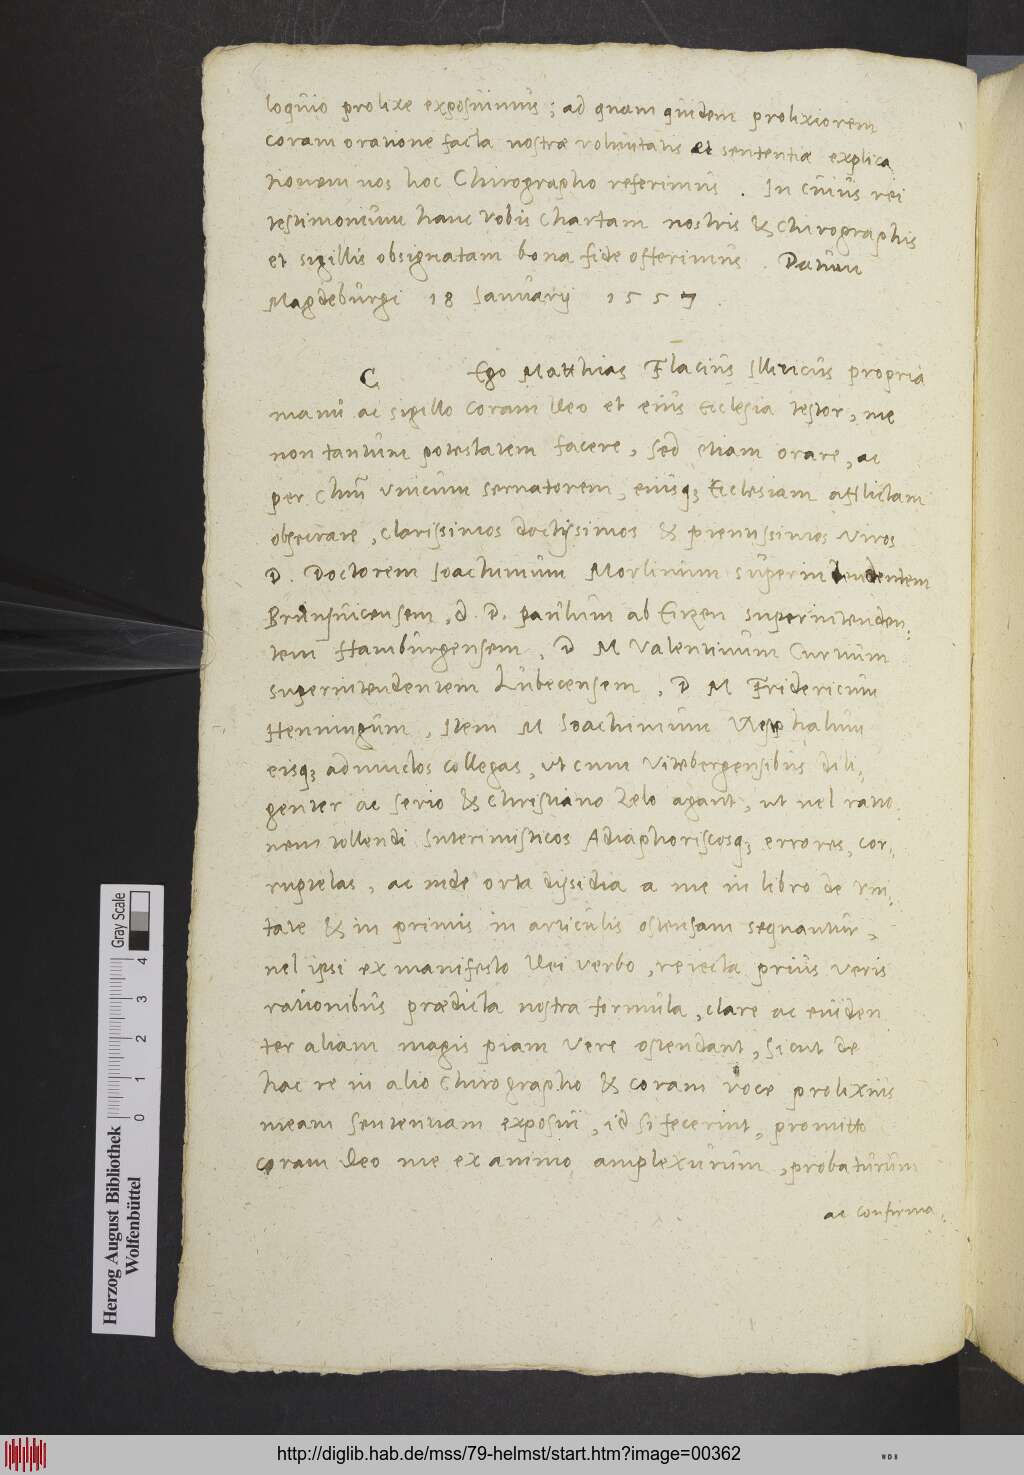 loquio prolixe exposuimus; ad quam quidem prolixiorem
coram oratione facta nostræ voluntatis et sententiæ explica
tionem nos hoc Chirographo referimus. In cuius rei
testimonium hanc vobis chartam nostris & chirographis
et sigillis obsignatam bona fide offerimus. Datum
Magdeburgi 18 Januarij 1557.
C Ego Matthias Flacius Illiricus propria
manu ac sigillo coram Deo et eius Ecclesia testor, me
non tantum potestatem facere, sed etiam orare, ac
per Chm̃ unicum seruatorem, eiusq; Ecclesiam afflictam
obsecrare, clarissimos doctissimos & pientissimos viros
D. Doctorem Joachimum Morlinum superintendentem
Brunsuicensem, d. D. paulum ab Eitzen superintenden,
tem Hamburgensem, D M Valentinum Curtium
superintendentem Lubecensem, D M Fridericum
Henningum, Item M Joachimum Westphalum
eisq; adiunctos collegas, ut cum Vitebergensibus dili,
genter ac serio & christiano zelo agant, ut uel ratio
nem tollendi Interimisticos Adiaphoriscosq; errores, cor,
ruptelas, ac inde orta dissidia a me in libro de vni,
tate & in primis in articulis ostensam sequantur,
uel ipsi ex manifesto Dei verbo, reiecta prius veris
rationibus prædicta nostra formula, clare ac euiden
ter aliam magis piam vere ostendant, sicut de
hac re in alio chirographo & coram voce prolixius
meam sententiam exposui, id si fecerint, promitto
coram Deo me ex animo amplexurum, probaturum
ac confirma,
Herzog August Bibliothek
Wolfenbüttel
Gray Scale
0 1 2 3 4
http://diglib.hab.de/mss/79-helmst/start.htm?image=00362
WDB